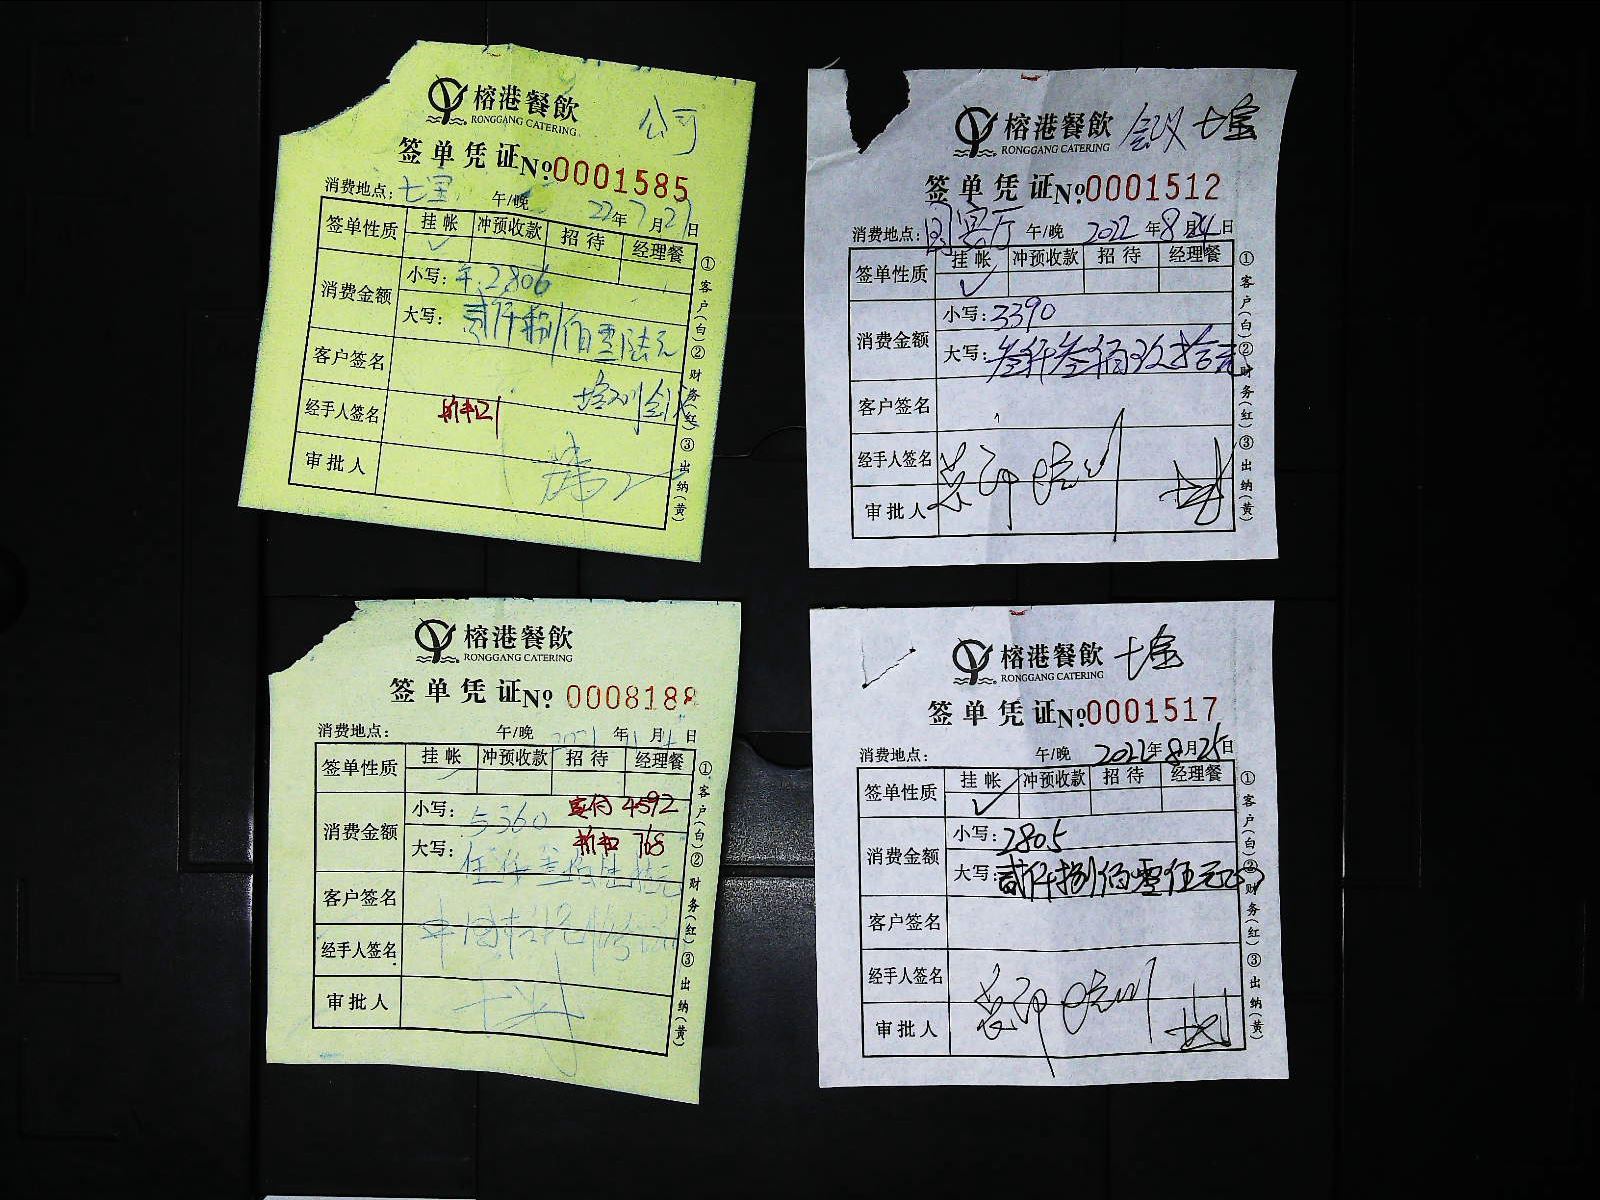 榕港餐飲
RONGGANG CATERING
公司
签单凭证 №0001585
消费地点：七宝 午/晚 22年7月27日
签单性质 挂帐 冲预收款 招待 经理餐
✓
消费金额 小写：¥:2806
大写：贰仟捌佰零陆元
客户签名
培训会议
经手人签名
审批人
①客户(白)②财务(红)③出纳(黄)
榕港餐飲
RONGGANG CATERING
会议 七宝
签单凭证 №0001512
消费地点： 午/晚 2022年8月24日
签单性质 挂帐 冲预收款 招待 经理餐
✓
消费金额 小写：3390
大写：叁仟叁佰玖拾元
客户签名
经手人签名
审批人
①客户(白)②财务(红)③出纳(黄)
榕港餐飲
RONGGANG CATERING
签单凭证 №0008188
消费地点： 午/晚 2021年 月 日
签单性质 挂帐 冲预收款 招待 经理餐
消费金额 小写：5360 实付 4592
大写： 折扣 768
客户签名
经手人签名
审批人
①客户(白)②财务(红)③出纳(黄)
榕港餐飲
RONGGANG CATERING
七宝
签单凭证 №0001517
消费地点： 午/晚 2022年8月25日
签单性质 挂帐 冲预收款 招待 经理餐
✓
消费金额 小写：2805
大写：贰仟捌佰零伍元
客户签名
经手人签名
审批人
①客户(白)②财务(红)③出纳(黄)